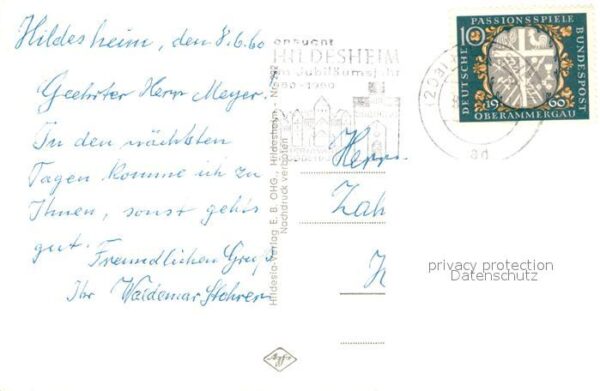 Hildesheim, den 8.6.60
Geehrter Herr Meyer.
In den nächsten
Tagen komme ich zu
Ihnen, sonst gehts
gut.
Freundlichen Gruß
Ihr Waldemar
Hildesia-Verlag E. B. OHG., Hildesheim - Nr. 292
Nachdruck verboten
besucht
HILDESHEIM
im Jubiläumsjahr
1960
10
DEUTSCHE
PASSIONSSPIELE
BUNDESPOST
1960
OBERAMMERGAU
Herrn
Zah
privacy protection
Datenschutz
Agfa